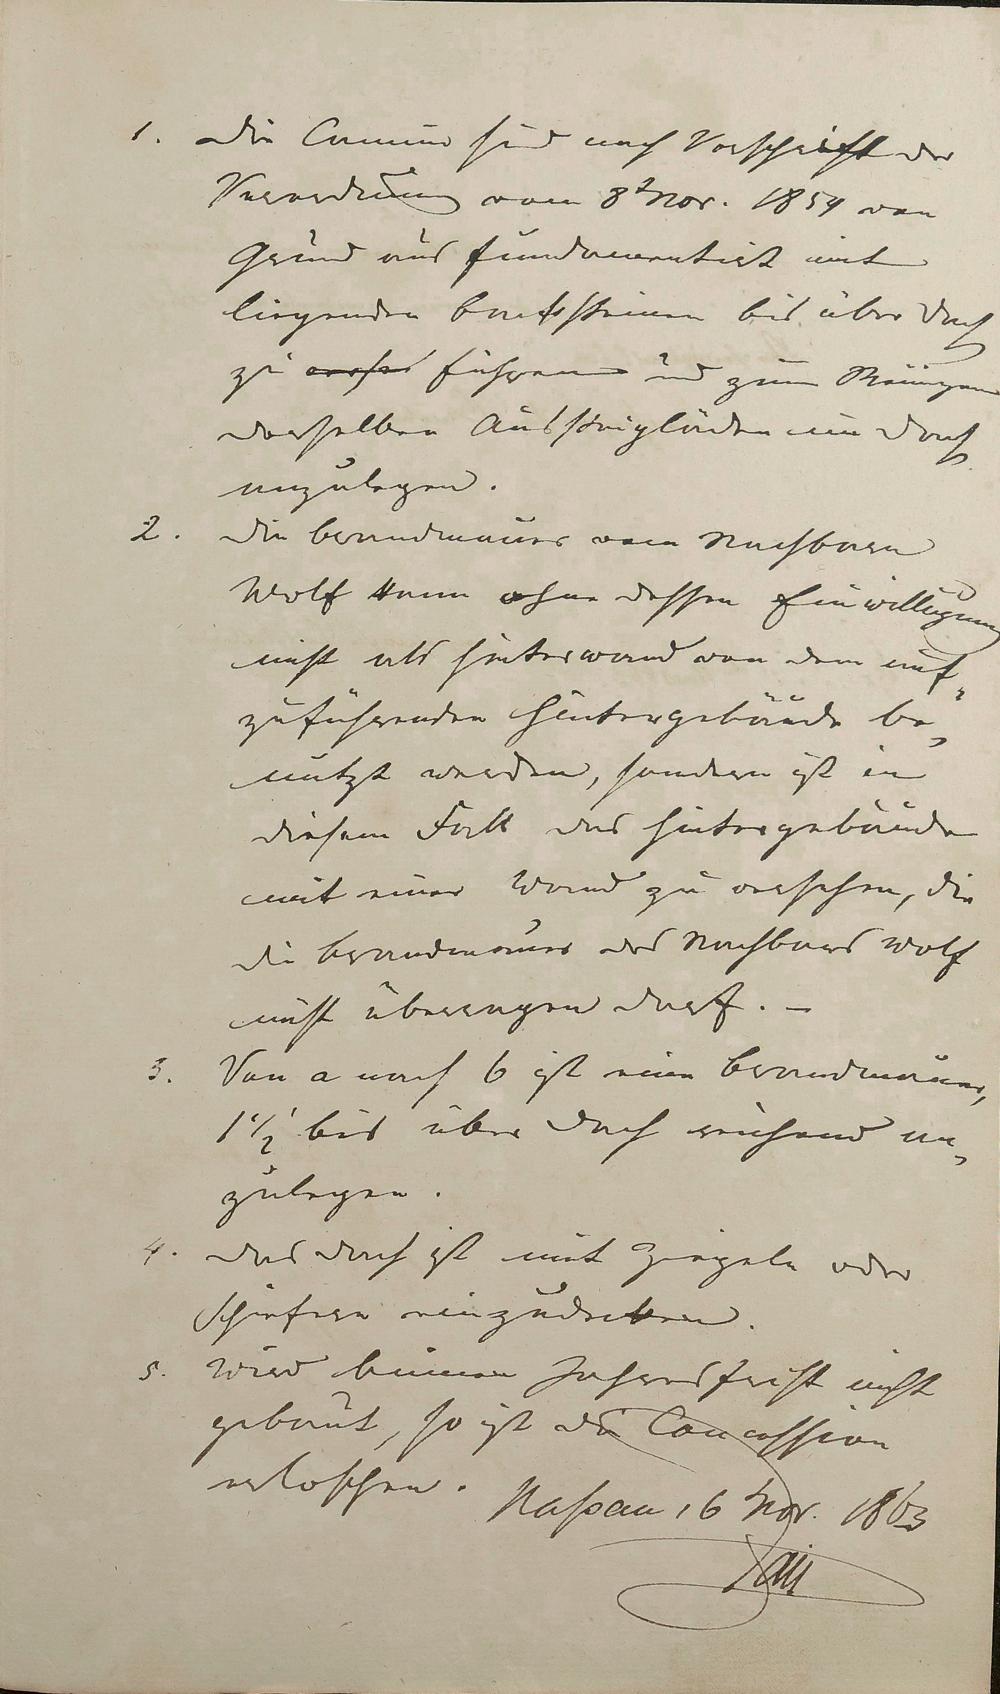 1. Die Camine sind nach Vorschrift der
Verordnung vom 8t Nov. 1854 von
Grund aus fundamentirt mit
liegenden Backsteinen bis über Dach
zu führen und zum Reinigen
derselben Aussteigläden im Dach
anzulegen.
2. Die Brandmauer vom Nachbarn
Wolf kann ohne dessen Einwilligung
nicht als Hinterwand von dem auf-
zuführenden Hintergebäude be-
nutzt werden, sondern ist in
diesem Fall das Hintergebäude
mit einer Wand zu versehen, die
die Brandmauer des Nachbars Wolf
nicht überragen darf. —
3. Von a nach b ist eine Brandmauer,
1 1/2' bis über Dach reichend an-
zulegen.
4. Das Dach ist mit Ziegeln oder
Schiefern einzudecken.
5. Wird binnen Jahresfrist nicht
gebaut, so ist die Concession
erloschen.
Nassau 16 Nov. 1863